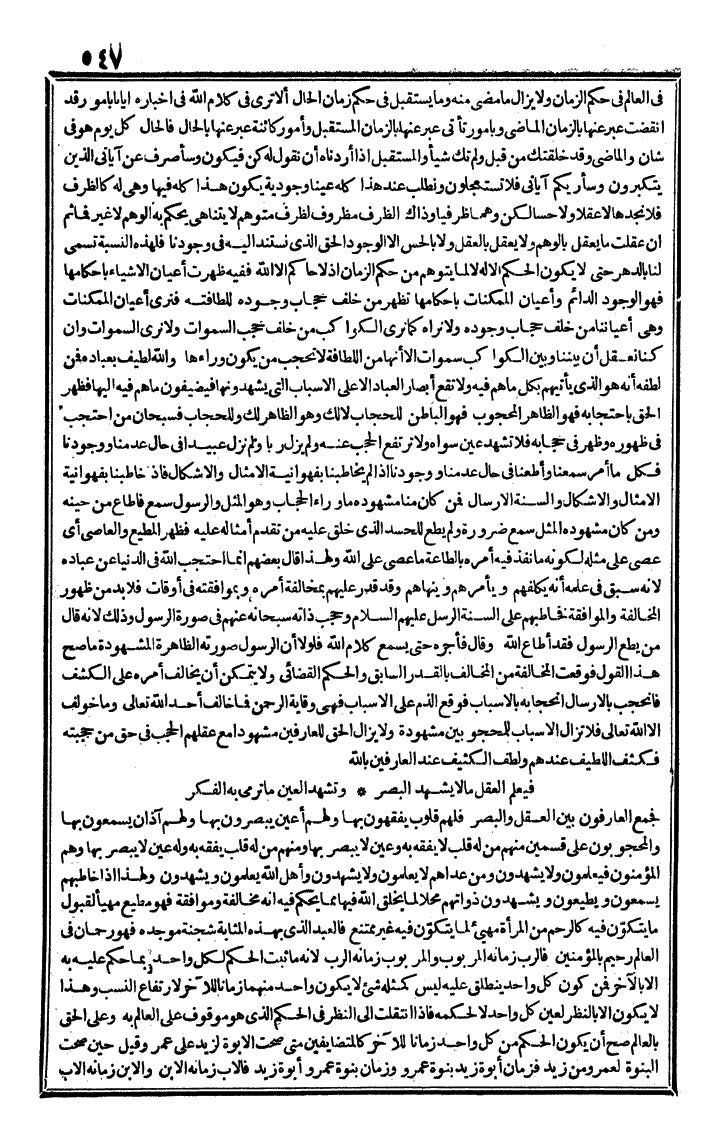 ٥٤٧
فى العالم فى حكم الزمان ولا يزال ما مضى منه وما يستقبل فى حكم زمان الحال ألا ترى فى كلام الله فى اخباره ايانا بامور قد
انقضت عبر عنها بالزمان الماضى وبامور تأتى عبر عنها بالزمان المستقبل وأمور كائنة عبر عنها بالحال فالحال كل يوم هو فى
شان والماضى وقد خلقتك من قبل ولم تك شيأ والمستقبل اذا أردناه أن نقول له كن فيكون وسأصرف عن آياتى الذين
يتكبرون وسأريكم آياتى فلا تستعجلون ونطلب عند هذا كله عينا وجودية يكون هذا كله فيها وهى له كالظرف
فلا نجدها لا عقلا ولا حسا لكن وهما ظرفيا وذاك الظرف مظروف لظرف متوهم لا يتناهى يحكم به الوهم لا غير فما ثم
ان عقلت ما يعقل بالوهم ولا يعقل بالعقل ولا بالحس الا الوجود الحق الذى نستند اليه فى وجودنا فلهذه النسبة تسمى
لنا بالدهر حتى لا يكون الحكم الا له لا لما يتوهم من حكم الزمان اذ لا حاكم الا الله ففيه ظهرت أعيان الاشياء باحكامها
فهو الوجود الدائم وأعيان الممكنات باحكامها تظهر من خلف حجاب وجوده للطافته فنرى أعيان الممكنات
وهى أعياننا من خلف حجاب وجوده ولا نراه كما نرى الكواكب من خلف حجب السموات ولا نرى السموات وان
كنا نعقل أن بيننا وبين الكواكب سموات الا أنها من اللطافة لا تحجب من يكون وراءها والله لطيف بعباده فمن
لطفه أنه هو الذى يأتيهم بكل ما هم فيه ولا تقع أبصار العباد الا على الاسباب التى يشهدونها فيضيفون ما هم فيه اليها فظهر
الحق باحتجابه فهو الظاهر المحجوب فهو الباطن للحجاب لا لك وهو الظاهر لك وللحجاب فسبحان من احتجب
فى ظهوره وظهر فى حجابه فلا تشهد عين سواه ولا ترتفع الحجب عنه ولم يزل ربا ولم نزل عبيدا فى حال عدمنا ووجودنا
فكل ما أمر سمعنا وأطعنا فى حال عدمنا ووجودنا اذا لم يخاطبنا بفهوانية الامثال والاشكال فاذا خاطبنا بفهوانية
الامثال والاشكال والسنة الارسال فمن كان منا مشهوده ما وراء الحجاب وهو المثل والرسول سمع فاطاع من حينه
ومن كان مشهوده المثل سمع ضرورة ولم يطع للحسد الذى خلق عليه من تقدم أمثاله عليه فظهر المطيع والعاصى أى
عصى على مثله لكونه ما نفذ فيه أمره بالطاعة ما عصى على الله ولهذا قال بعضهم انما احتجب الله فى الدنيا عن عباده
لانه سبق فى علمه أنه يكلفهم ويأمرهم وينهاهم وقد قدر عليهم بمخالفة أمره وبموافقته فى أوقات فلا بد من ظهور
المخالفة والموافقة فخاطبهم على السنة الرسل عليهم السلام وحجب ذاته سبحانه عنهم فى صورة الرسول وذلك لانه قال
من يطع الرسول فقد أطاع الله وقال فأجره حتى يسمع كلام الله فلولا أن الرسول صورته الظاهرة المشهودة ما صح
هذا القول فوقعت المخالفة من المخالف بالقدر السابق والحكم القضائى ولا يتمكن أن يخالف أمره على الكشف
فانحجب بالارسال انحجابه بالاسباب فوقع الذم على الاسباب فهى وقاية الرحمن فما خالف أحد الله تعالى وما خولف
الا الله تعالى فلا تزال الاسباب للمحجوبين مشهودة ولا يزال الحق للعارفين مشهودا مع عقلهم الحجب فى حق من حجبته
فكثف اللطيف عندهم ولطف الكثيف عند العارفين بالله
فيعلم العقل ما لا يشهد البصر * وتشهد العين ما ترمى به الفكر
فجمع العارفون بين العقل والبصر فلهم قلوب يفقهون بها ولهم أعين يبصرون بها ولهم آذان يسمعون بها
والمحجوبون على قسمين منهم من له قلب لا يفقه به وعين لا يبصر بها ومنهم من له قلب يفقه به وله عين لا يبصر بها وهم
المؤمنون فيعلمون ولا يشهدون ومن عداهم لا يعلمون ولا يشهدون وأهل الله يعلمون ويشهدون ولهذا اذا خاطبهم
يسمعون ويطيعون ويشهدون ذواتهم محلا لما يخلق الله فيها مما يحكم فيه انه مخالفة وموافقة فهو مطيع مهيأ لقبول
ما يتكون فيه كالرحم من المرأة مهيئ لما يتكون فيه غير ممتنع فالعبد الذى بهذه المثابة شجنة موجده فهو رحمان فى
العالم رحيم بالمؤمنين فالرب زمانه المربوب والمربوب زمانه الرب لانه ما ثبت الحكم لكل واحد بما حكم عليه به
الا بالآخر فمن كون كل واحد ينطلق عليه ليس كمثله شئ لا يكون واحد منهما زمانا للآخر لارتفاع النسب وهذا
لا يكون الا بالنظر لعين كل واحد لا لحكمه فاذا انتقلت الى النظر فى الحكم الذى هو موقوف على العالم به وعلى الحق
بالعالم صح أن يكون الحكم من كل واحد زمانا للآخر كالمتضايفين متى صحت الابوة لزيد على عمر وقيل حين صحت
البنوة لعمرو من زيد فزمان أبوة زيد بنوة عمرو وزمان بنوة عمرو أبوة زيد فالاب زمانه الابن والابن زمانه الاب